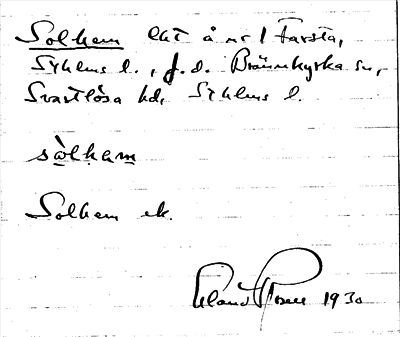 Solhem lht å nr 1 Farsta,
Sthlms l., f.d. Brännkyrka sn,
Svartlösa hd, Sthlms l.
sòlham
Solhem ek.
1930